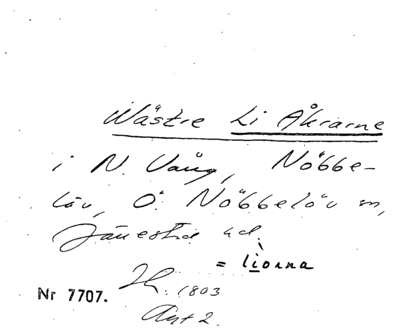 Wästre Li Åkrarne
i N. Vång, Nöbbe-
löv, Ö. Nöbbelöv sn,
Järrestad hd.
= liorna
1803
Akt 2.
Nr 7707.